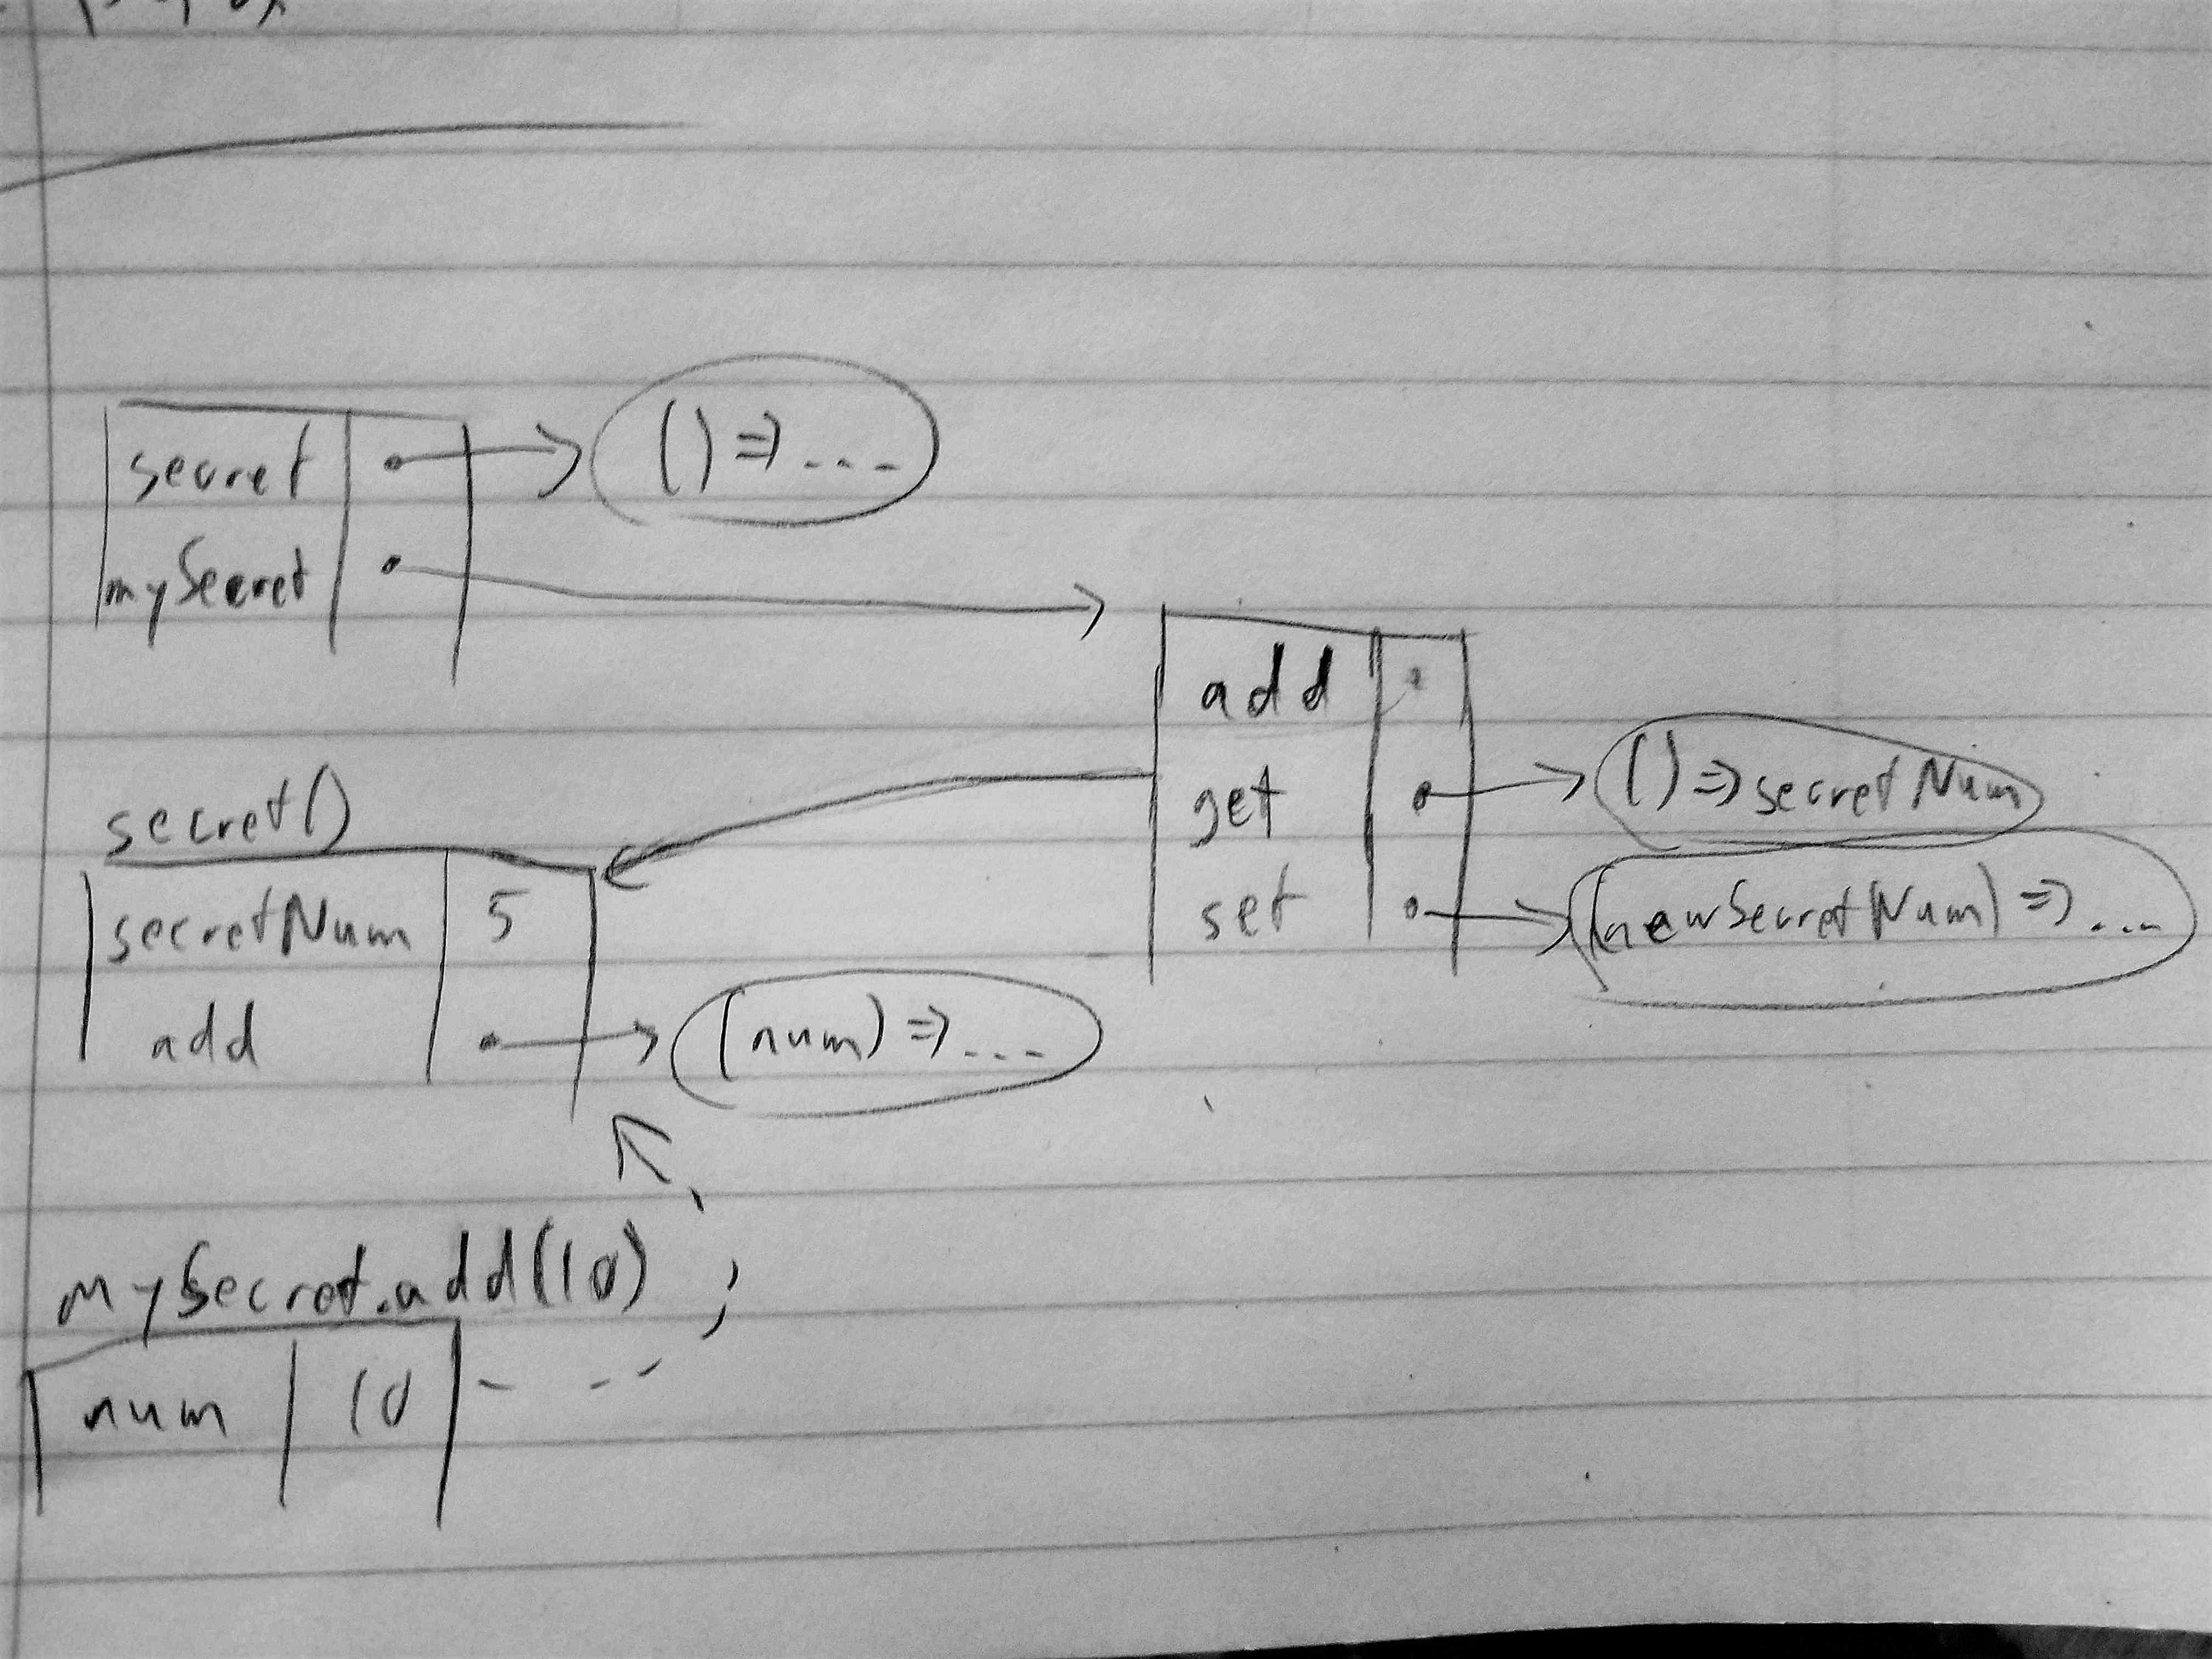 secret () => ...
mySecret
add
get () => secretNum
set (newSecretNum) => ...
secret()
secretNum 5
add (num) => ...
mySecret.add(10) ;
num 10